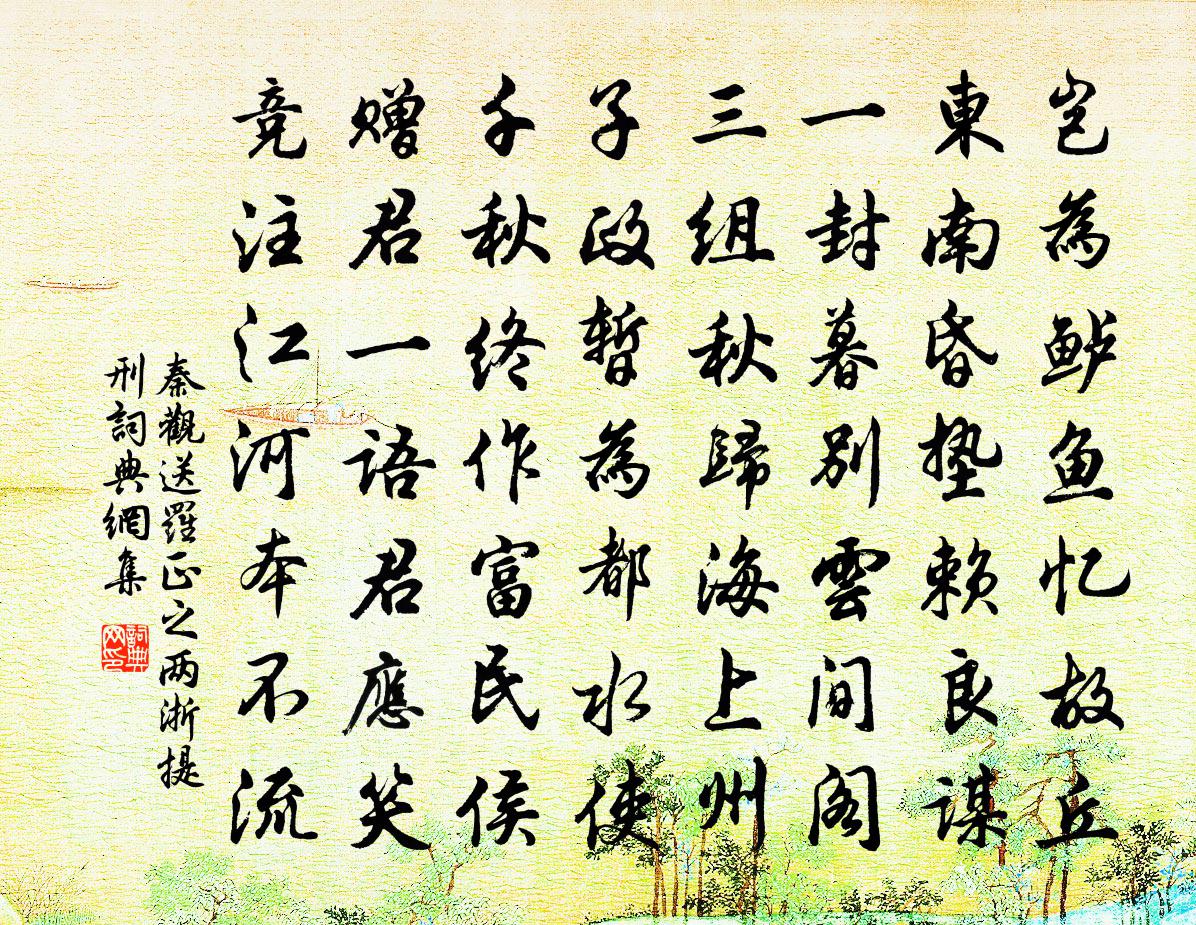 豈為鲈魚忆故丘
東南昏垫赖良謀
一封暮别雲间阁
三组秋歸海上州
子政暫為都水使
千秋终作富民侯
赠君一語君應笑
竞注江河本不流
秦觀送羅正之两浙提
刑詞典網集
詞典
网印